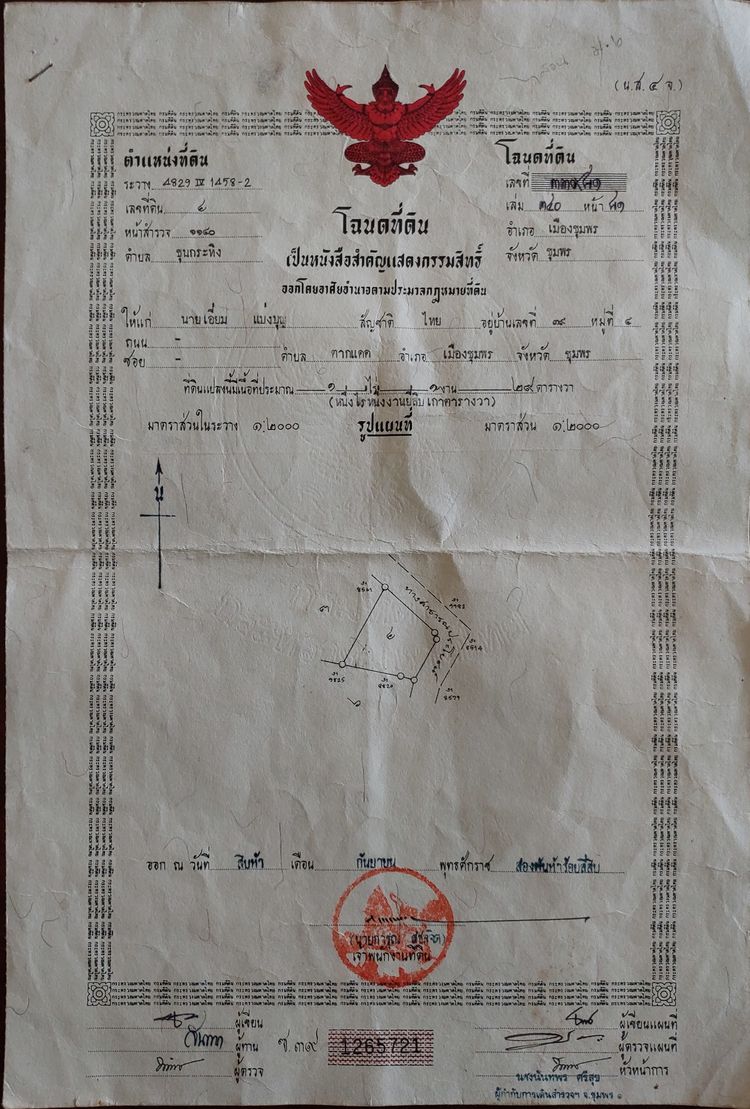 (น.ส. ๔ จ.)
ตำแหน่งที่ดิน
ระวาง 4829 IV 1458-2
เลขที่ดิน ๔
หน้าสำรวจ ๑๑๔๐
ตำบล ขุนกระทิง
โฉนดที่ดิน
เลขที่
เล่ม ๓๔๐ หน้า ๘๑
อำเภอ เมืองชุมพร
จังหวัด ชุมพร
โฉนดที่ดิน
เป็นหนังสือสำคัญแสดงกรรมสิทธิ์
ออกโดยอาศัยอำนาจตามประมวลกฎหมายที่ดิน
ให้แก่ นายเอี่ยม แบ่งบุญ สัญชาติ ไทย อยู่บ้านเลขที่ ๓๙ หมู่ที่ ๔
ถนน -
ซอย - ตำบล ตากแดด อำเภอ เมืองชุมพร จังหวัด ชุมพร
ที่ดินแปลงนี้มีเนื้อที่ประมาณ ๑ ไร่ ๑ งาน ๒๙ ตารางวา
(หนึ่งไร่หนึ่งงานยี่สิบเก้าตารางวา)
มาตราส่วนในระวาง ๑:๒๐๐๐ รูปแผนที่ มาตราส่วน ๑:๒๐๐๐
น
ทางสาธารณประโยชน์
๔
ออก ณ วันที่ สิบห้า เดือน กันยายน พุทธศักราช สองพันห้าร้อยสี่สิบ
เจ้าพนักงานที่ดิน
ผู้เขียน
ผู้ทาน
ผู้ตรวจ
ช.๓๙
1265721
ผู้เขียนแผนที่
ผู้ตรวจแผนที่
หัวหน้าการ
นางนันทพร ศรีสุข
ผู้กำกับการเดินสำรวจฯ จ.ชุมพร ๑